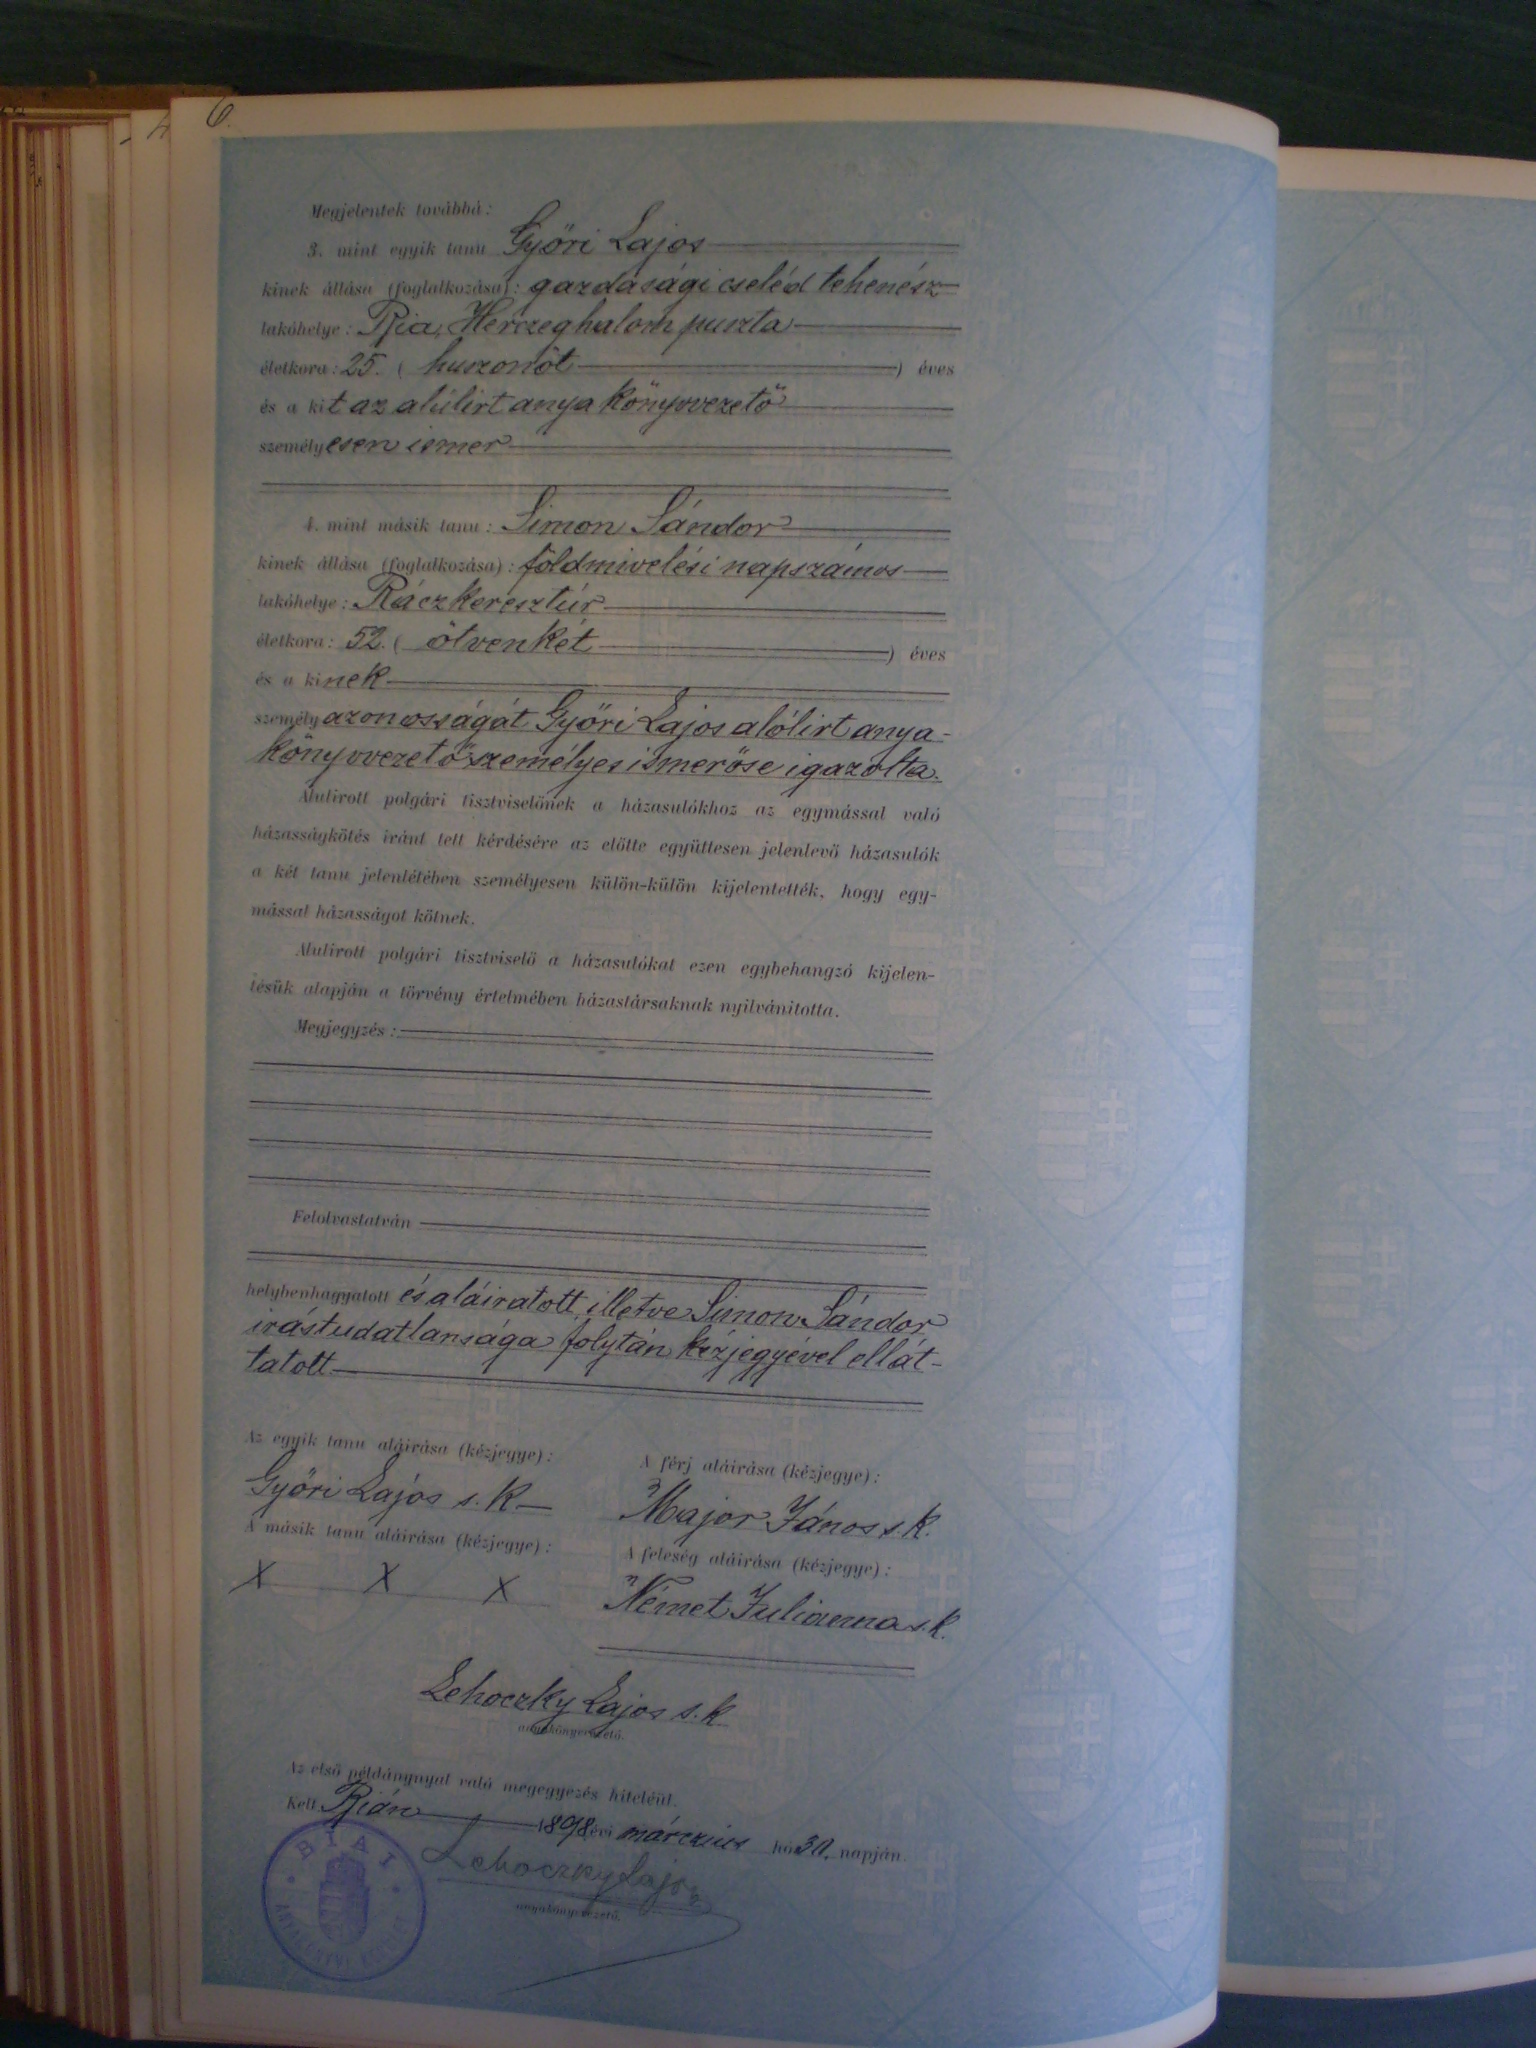 6.
Megjelentek továbbá:
3. mint egyik tanu Győri Lajos
kinek állása (foglalkozása): gazdasági cseléd tehenész
lakóhelye: Bia, Herczeghalom puszta
életkora: 25. (huszonöt) éves
és a kit az alúlirt anyakönyvvezető
személyesen ismer
4. mint másik tanu: Simon Sándor
kinek állása (foglalkozása): földmivelési napszámos
lakóhelye: Ráczkeresztúr
életkora: 52. (ötvenkét) éves
és a kinek
személyazonosságát Győri Lajos alólirt anya-
könyvvezető személyes ismerőse igazolta.
Alulirott polgári tisztviselőnek a házasulókhoz az egymással való
házasságkötés iránt tett kérdésére az előtte együttesen jelenlevő házasulók
a két tanu jelenlétében személyesen külön-külön kijelentették, hogy egy-
mással házasságot kötnek.
Alulirott polgári tisztviselő a házasulókat ezen egybehangzó kijelen-
tésük alapján a törvény értelmében házastársaknak nyilvánitotta.
Megjegyzés:
Felolvastatván
helybenhagyatott és aláiratott, illetve Simon Sándor
irástudatlansága folytán kézjegyével ellát-
tatott
Az egyik tanu aláirása (kézjegye):
Győri Lajos s. k.
A férj aláirása (kézjegye):
Major János s. k.
A másik tanu aláirása (kézjegye):
X X X
A feleség aláirása (kézjegye):
Német Julianna s. k.
Lehoczky Lajos s. k.
anyakönyvvezető.
Az első példánynyal való megegyezés hiteléül.
Kelt Bián 1898 évi márczius hó 30. napján.
Lehoczky Lajos
anyakönyvvezető.
BIAI
ANYAKÖNYVI KERÜLET